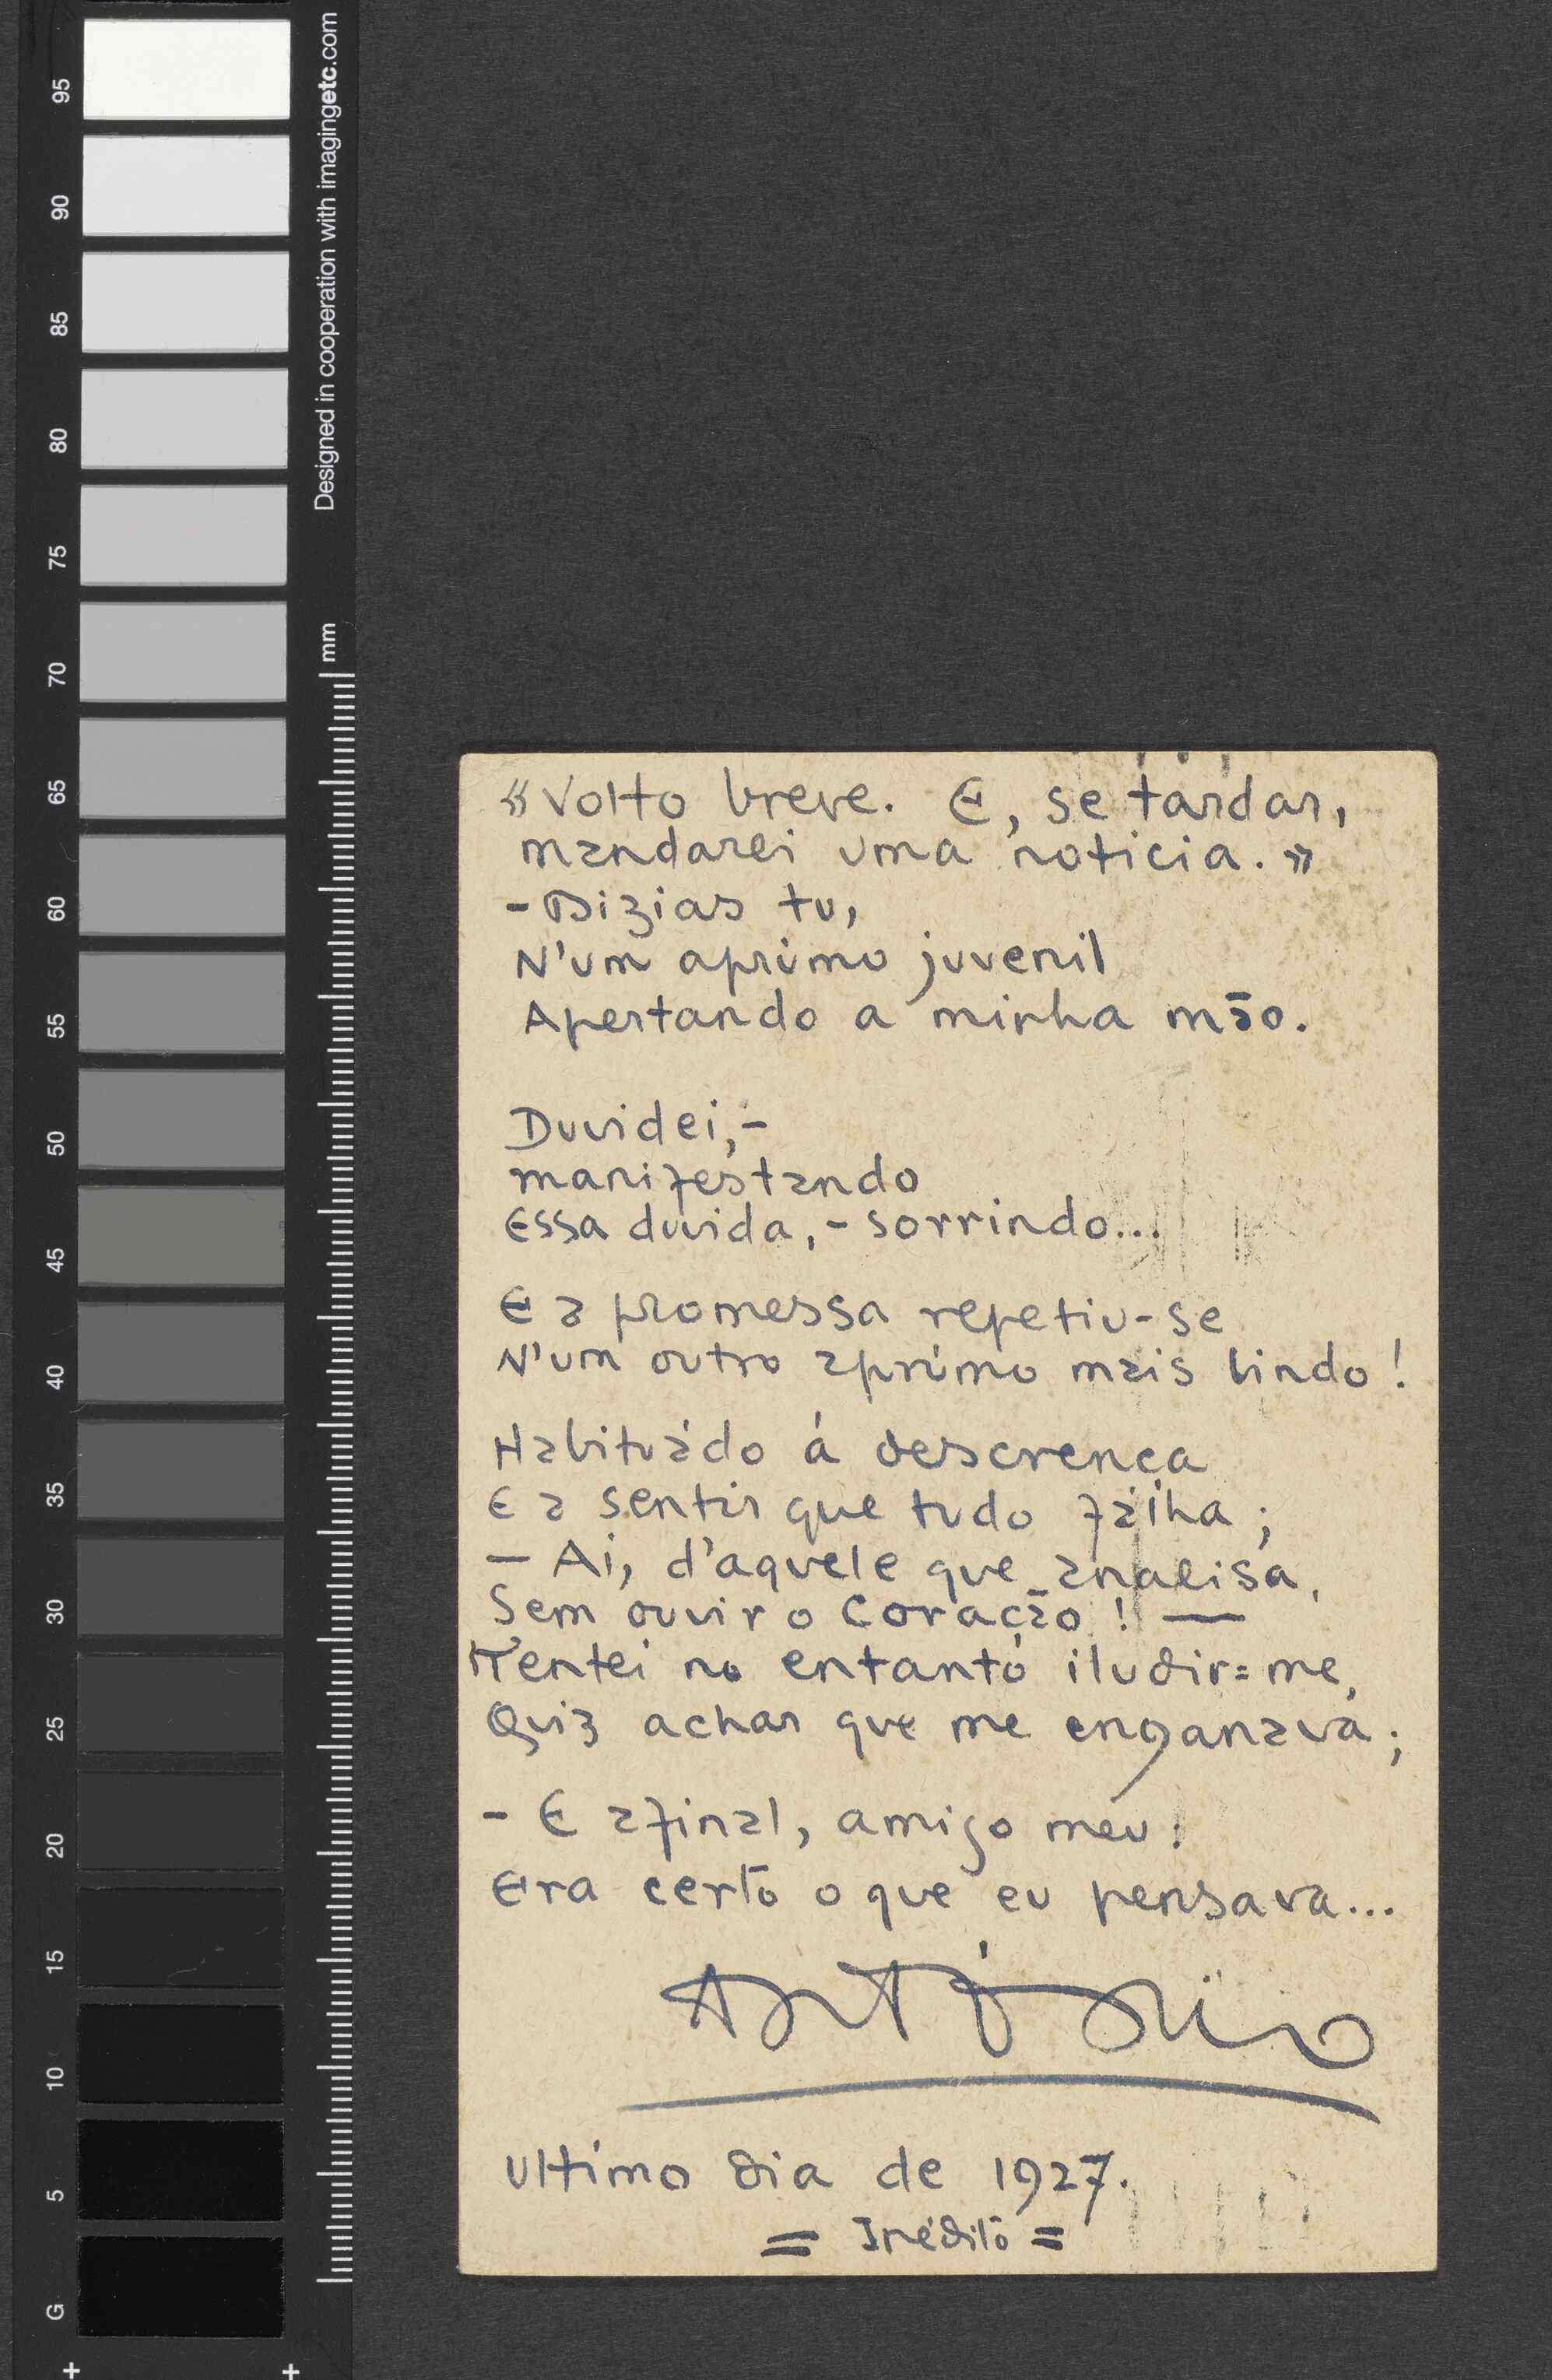 «Volto breve. E, se tardar,
mandarei uma noticia.»
- Dizias tu,
N'um aprumo juvenil
Apertando a minha mão.
Duvidei,-
manifestando
Essa duvida,- sorrindo...
E a promessa repetiu-se
N'um outro aprumo mais lindo!
Habituádo á descrença
E a sentir que tudo fálha;
— Ai, d'aquele que analisa,
Sem ouvir o Coração! —
Tentei no entanto iludir=me,
Quiz achar que me enganava;
- E afinal, amigo meu!
Era certo o que eu pensava...
António
Ultimo dia de 1927.
= Inédito =
95
90
85
80
75
70
65
60
55
50
45
40
35
30
25
20
15
10
5
G
Designed in cooperation with imagingetc.com
mm